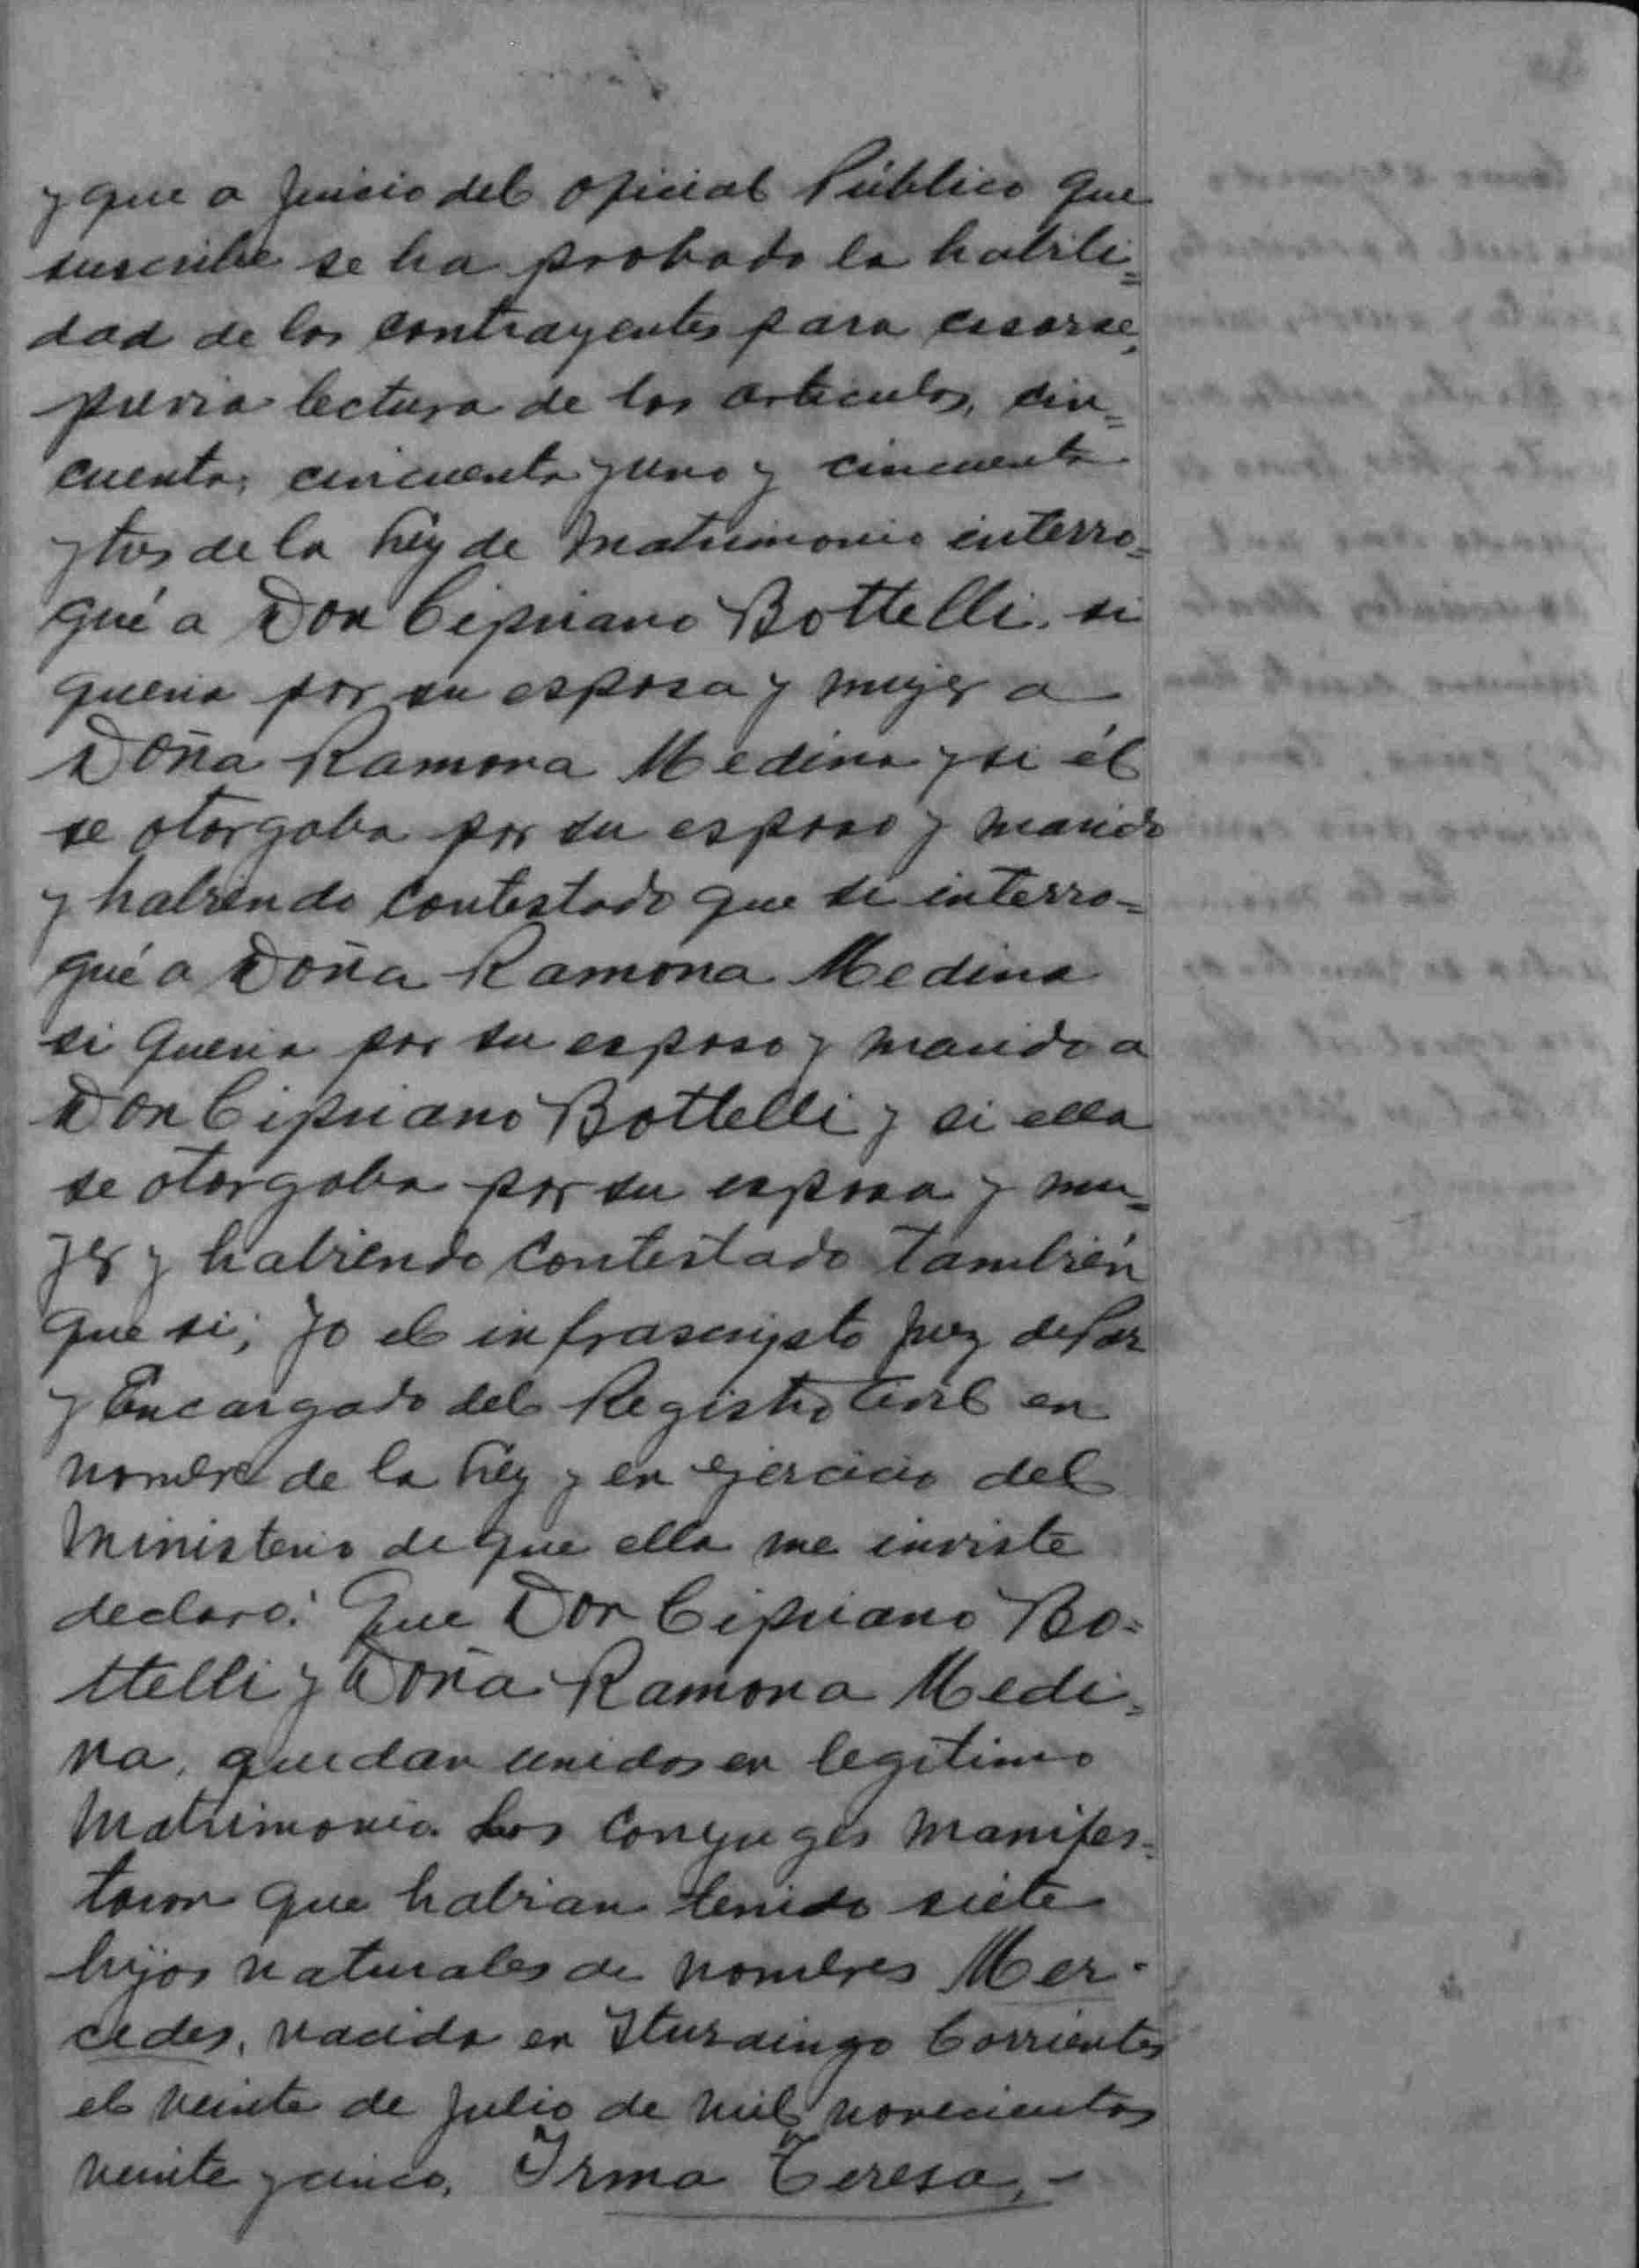 y que a Juicio del Oficial Público que
suscribe se ha probado la habili=
dad de los contrayentes para casarse,
previa lectura de los articulos, cin=
cuenta, cincuenta y uno y cincuenta
y tres de la Ley de Matrimonio interro=
gué a Don Cipriano Bottelli, si
queria por su esposa y mujer a
Doña Ramona Medina y si él
se otorgaba por su esposo y marido
y habiendo contestado que si interro=
gué a Doña Ramona Medina
si queria por su esposo y marido a
Don Cipriano Bottelli y si ella
se otorgaba por su esposa y mu=
jer y habiendo contestado también
que si; Yo el infrascripto Juez de Paz
y Encargado del Registro Civil en
nombre de la Ley y en ejercicio del
Ministerio de que ella me inviste
declaro: Que Don Cipriano Bo=
ttelli y Doña Ramona Medi=
na, quedan unidos en legitimo
Matrimonio. Los conyuges manifes=
taron que habian tenido siete
hijos naturales de nombres Mer-
cedes, nacida en Ituzaingo Corrientes
el veinte de Julio de mil novecientos
veinte y cinco, Irma Teresa,-